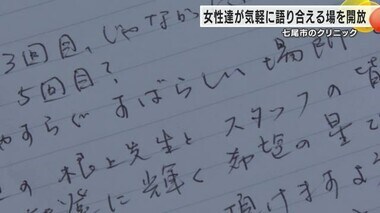 女性達が気軽に語り合える場を開放
七尾市のクリニック
3回目、じゃなか
5回目?
やすらぐすばらしい場所
根上先生とスタッフの皆
に輝く希望の星で
頂けますよ